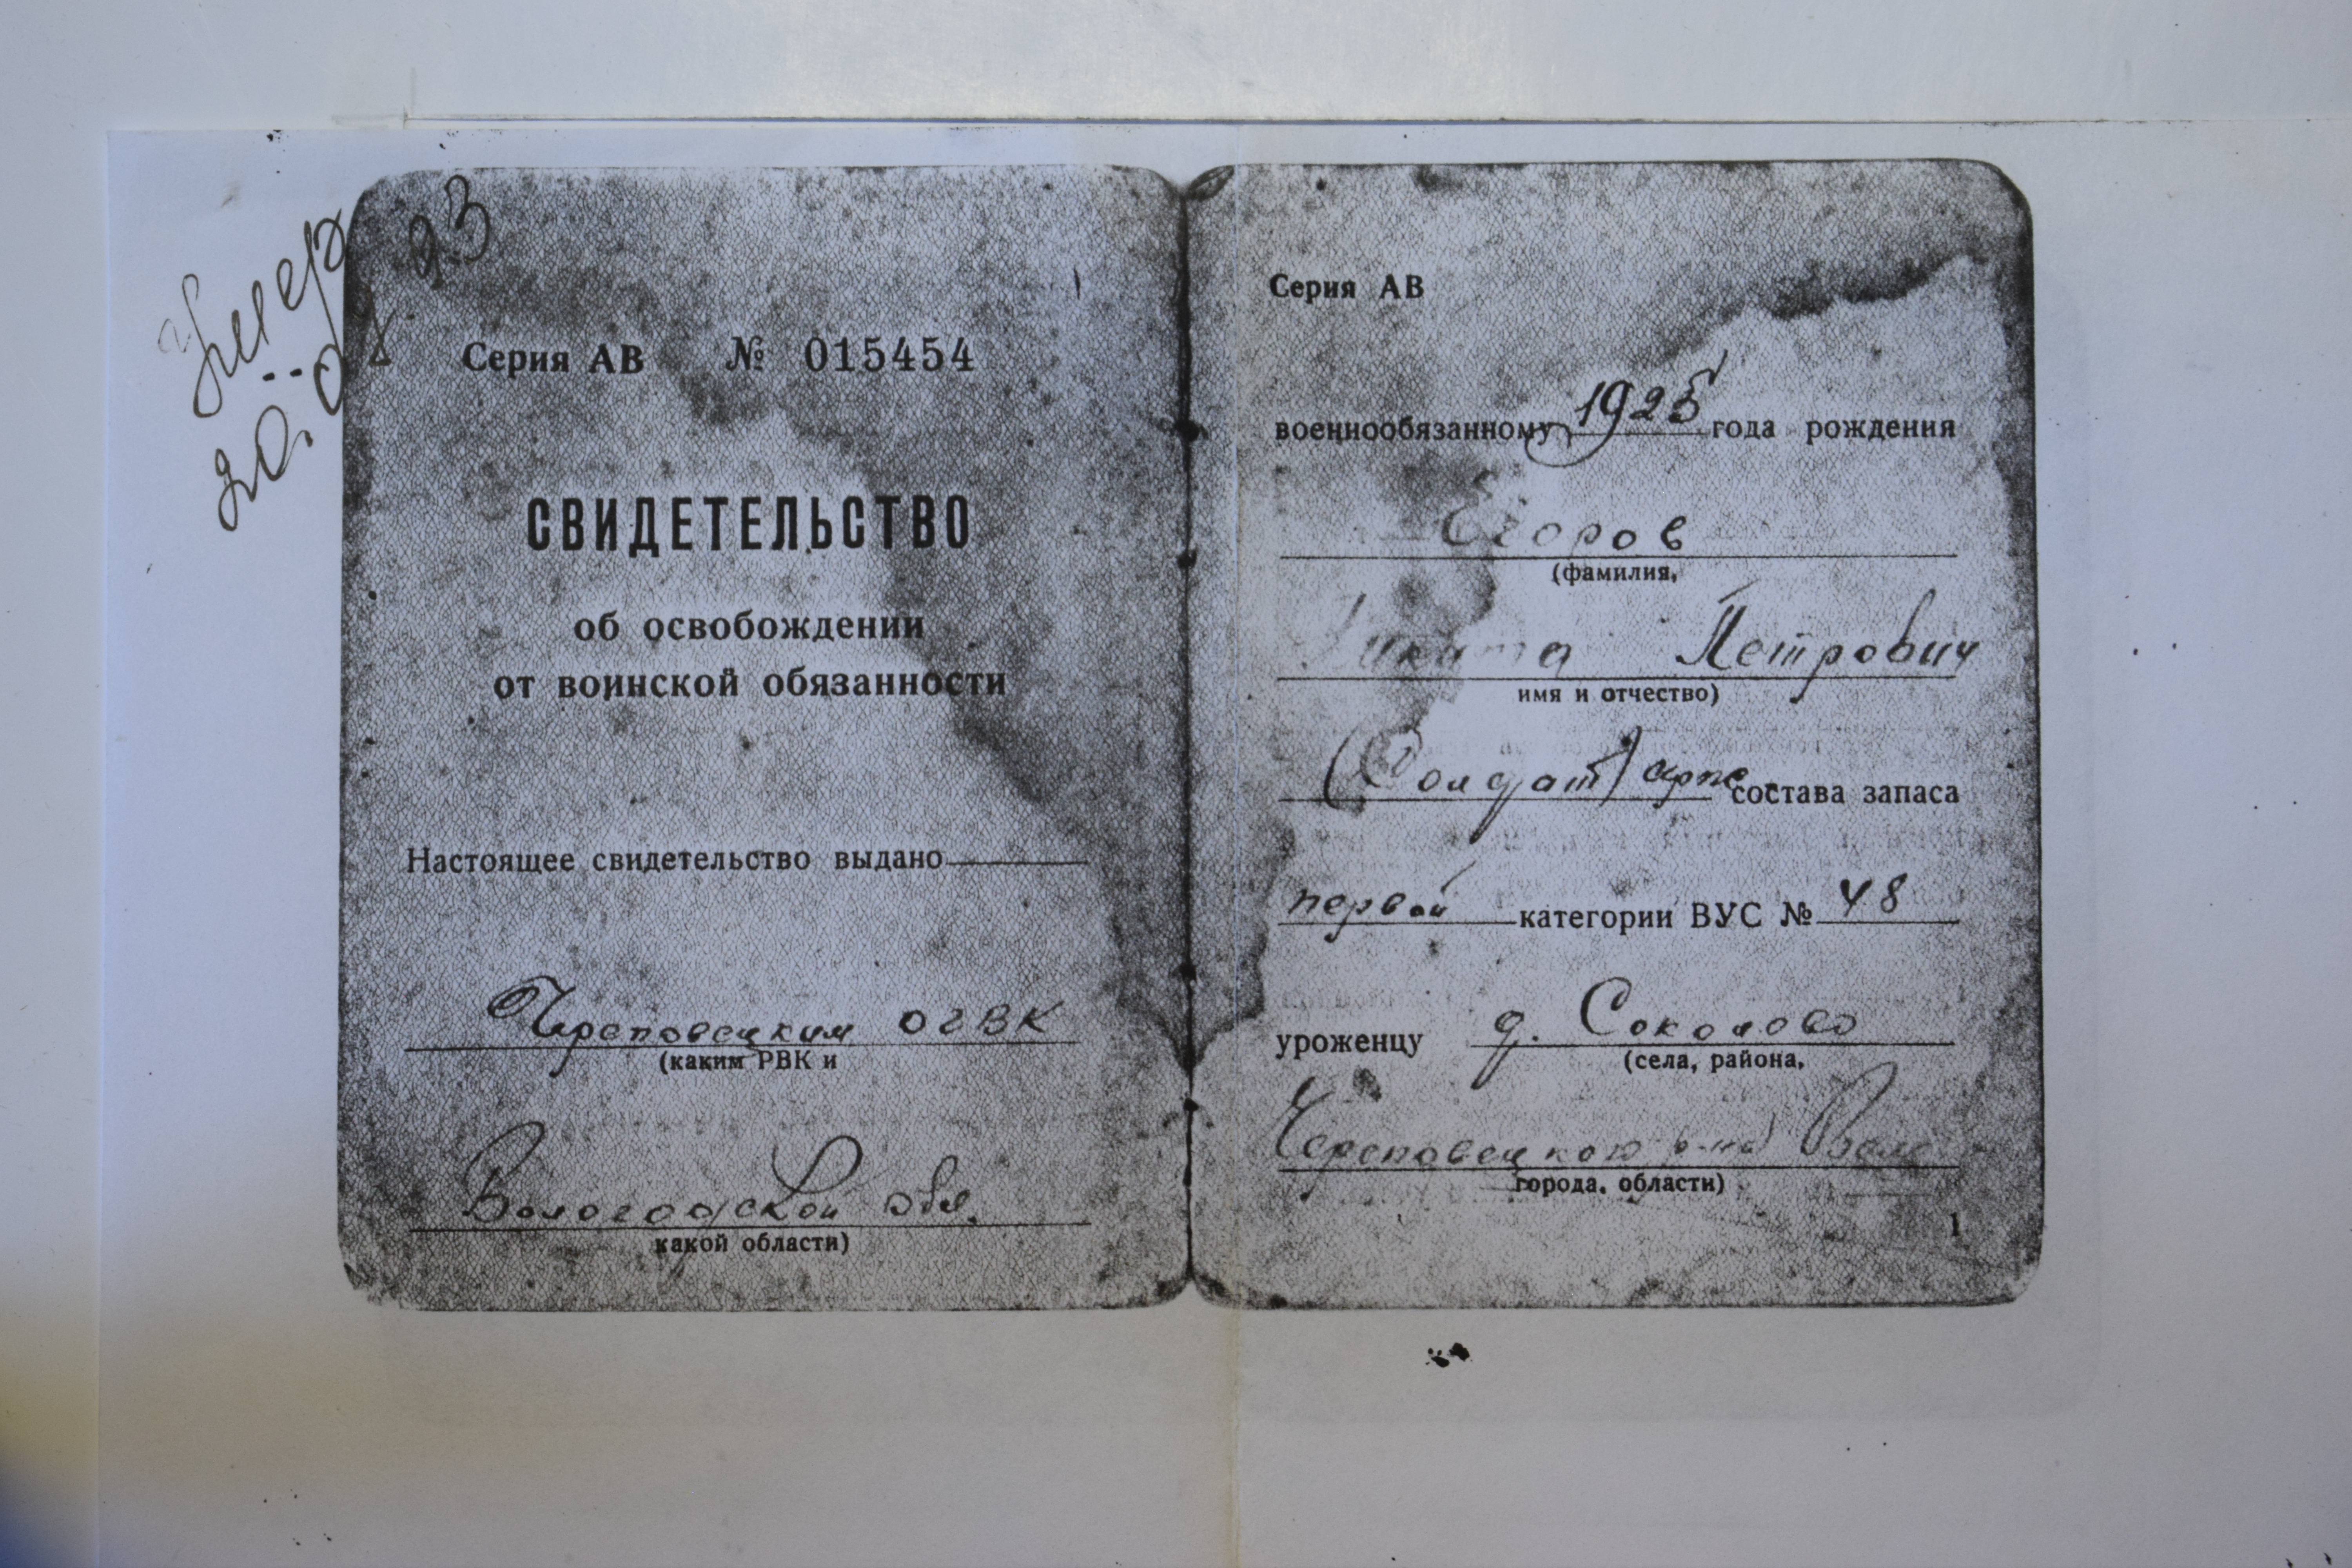 Умер
20.0 93
Серия АВ № 015454
СВИДЕТЕЛЬСТВО
об освобождении
от воинской обязанности
Настоящее свидетельство выдано
Череповецким ОГВК
(каким РВК и
Вологодской обл.
какой области)
Серия АВ
военнообязанному 1925 года рождения
Егоров
(фамилия,
Никита Петрович
имя и отчество)
(Солдат) серж. состава запаса
первой категории ВУС № 48
уроженцу д. Соколово
(села, района,
Череповецкого р-на Воло
города, области)
1